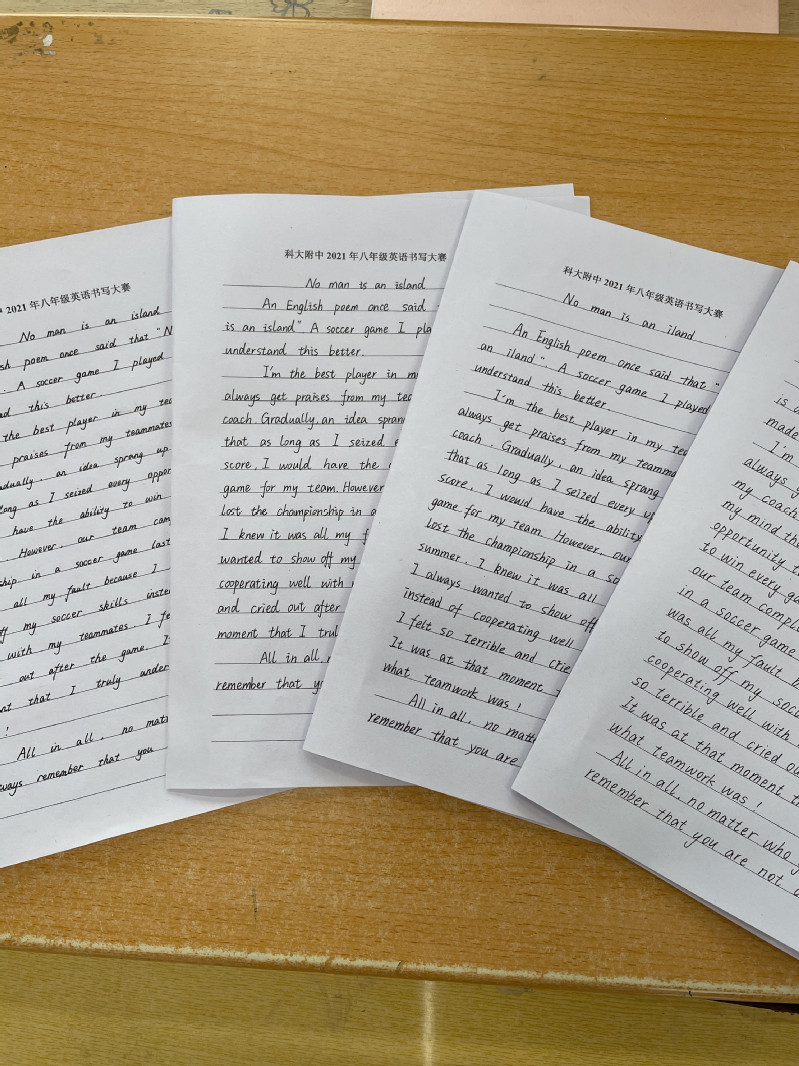 2021 年八年级英语书写大赛
No man is an island
poem once said that "N
. A soccer game I played
this better.
the best player in my
praises from my teammates
an idea sprang up
long as I seized every
have the ability to win
. However, our team
in a soccer game last
all my fault because I
my soccer skills
with my teammates I
out after the game. I
that I truly
!
All in all, no
remember that you
科大附中 2021 年八年级英语书写大赛
No man is an island
An English poem once said
is an island". A soccer game I
understand this better.
I'm the best player in
always get praises from my
coach. Gradually, an idea
that as long as I seized
score, I would have the
game for my team. However
lost the championship in
I knew it was all my
wanted to show off my
cooperating well with
and cried out after
moment that I
All in all,
remember that
科大附中 2021 年八年级英语书写大赛
No man is an iland
An English poem once said that "
an iland". A soccer game I played
understand this better.
I'm the best player in my
always get praises from my
coach. Gradually, an idea sprang
that as long as I seized every
score, I would have the ability
game for my team. However, our
lost the championship in a
summer. I knew it was all
I always wanted to show off
instead of cooperating well
I felt so terrible and
It was at that moment
what teamwork was!
All in all, no
remember that you are
is
made
I'm
always
my coach
my mind
opportunity
to win every
our team
in a soccer game
was all my fault
to show off my
cooperating well with
so terrible and cried
It was at that moment
what teamwork was!
All in all, no matter who
remember that you are not